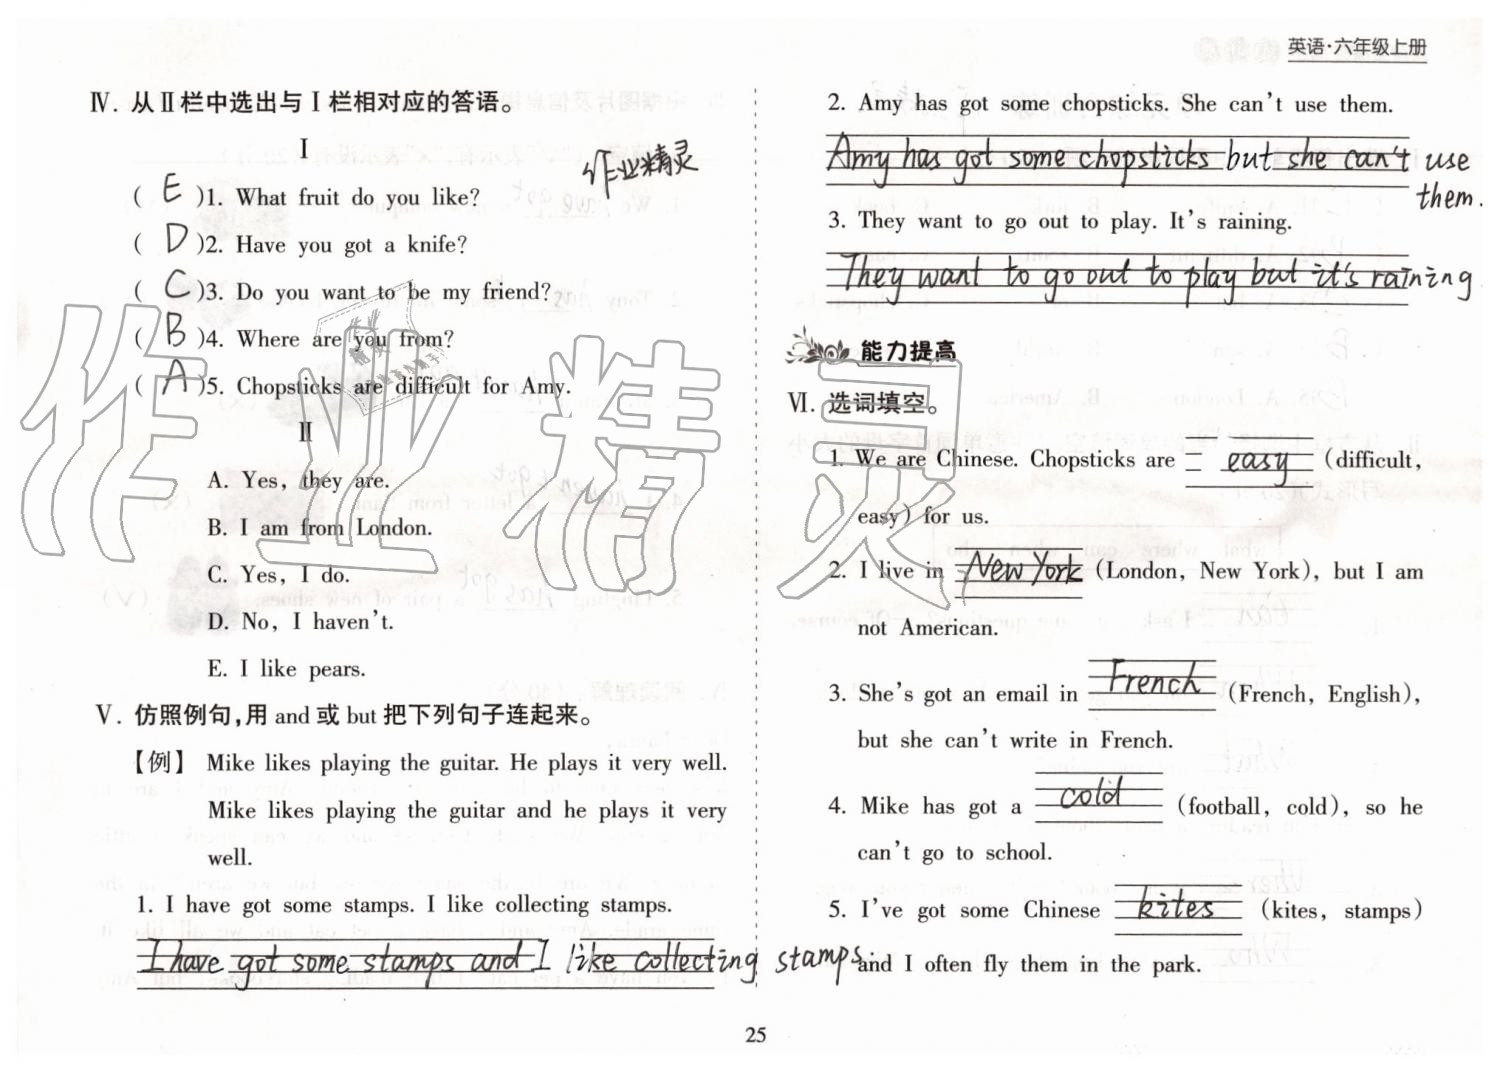 英语·六年级上册
Ⅳ. 从Ⅱ栏中选出与Ⅰ栏相对应的答语。
Ⅰ
作业精灵
( E )1. What fruit do you like?
( D )2. Have you got a knife?
( C )3. Do you want to be my friend?
( B )4. Where are you from?
( A )5. Chopsticks are difficult for Amy.
Ⅱ
A. Yes, they are.
B. I am from London.
C. Yes, I do.
D. No, I haven't.
E. I like pears.
Ⅴ. 仿照例句,用 and 或 but 把下列句子连起来。
【例】 Mike likes playing the guitar. He plays it very well.
Mike likes playing the guitar and he plays it very
well.
1. I have got some stamps. I like collecting stamps.
I have got some stamps and I like collecting stamps.
2. Amy has got some chopsticks. She can't use them.
Amy has got some chopsticks but she can't use
them.
3. They want to go out to play. It's raining.
They want to go out to play but it's raining
能力提高
Ⅵ. 选词填空。
1. We are Chinese. Chopsticks are easy (difficult,
easy) for us.
2. I live in New York (London, New York), but I am
not American.
3. She's got an email in French (French, English),
but she can't write in French.
4. Mike has got a cold (football, cold), so he
can't go to school.
5. I've got some Chinese kites (kites, stamps)
and I often fly them in the park.
25
作业精灵